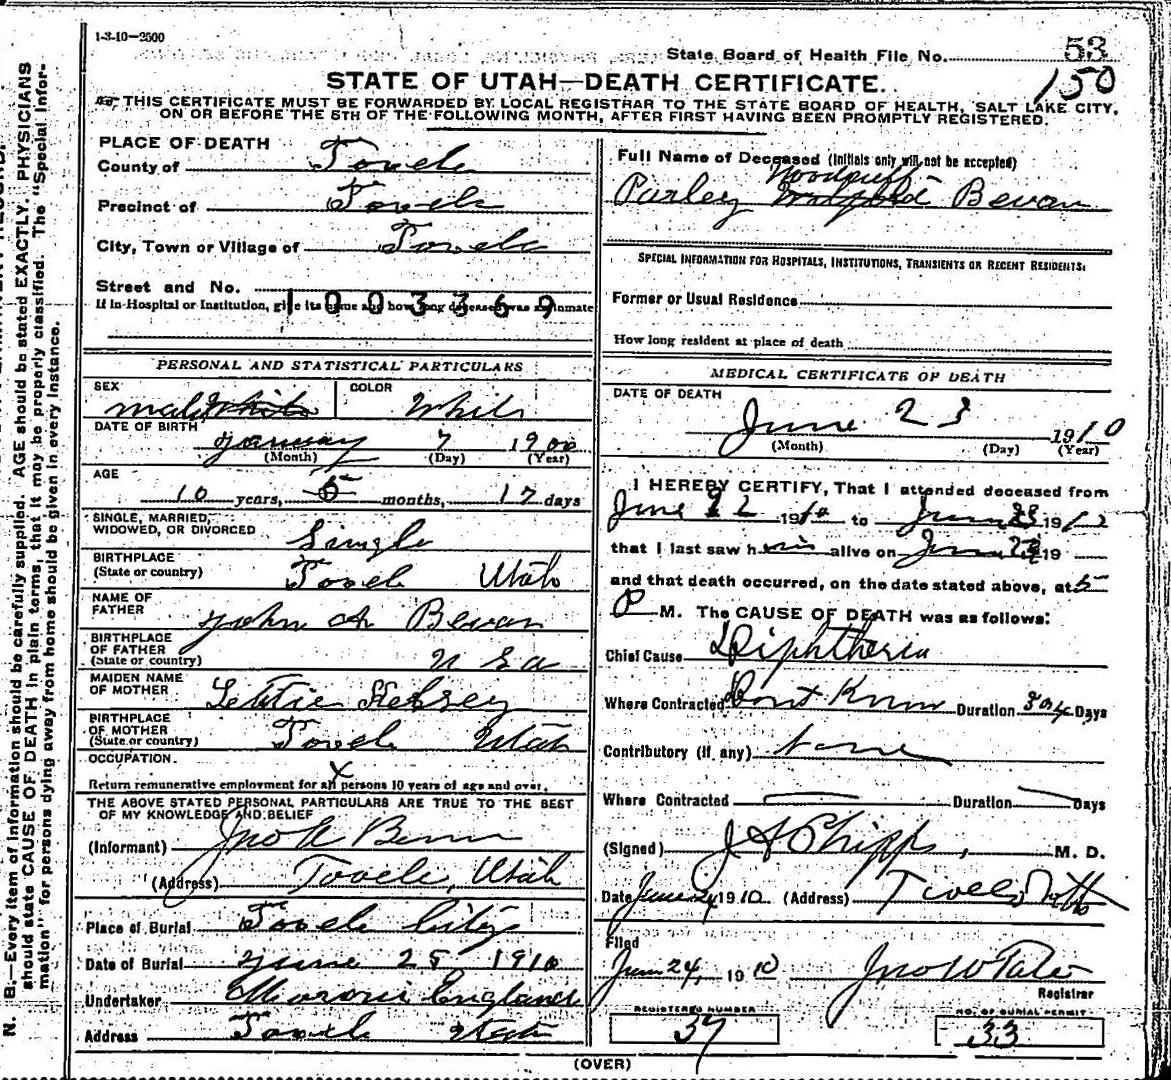 1-3-10-2500
State Board of Health File No. 53
150
STATE OF UTAH—DEATH CERTIFICATE.
THIS CERTIFICATE MUST BE FORWARDED BY LOCAL REGISTRAR TO THE STATE BOARD OF HEALTH, SALT LAKE CITY,
ON OR BEFORE THE 5TH OF THE FOLLOWING MONTH, AFTER FIRST HAVING BEEN PROMPTLY REGISTERED.
PLACE OF DEATH
County of Tooele
Precinct of Tooele
City, Town or Village of Tooele
Street and No.
If in Hospital or Institution, give its name and how long deceased was an inmate
1003369
PERSONAL AND STATISTICAL PARTICULARS
SEX
male White
COLOR
White
DATE OF BIRTH
January 7 1900
(Month) (Day) (Year)
AGE
10 years, 5 months, 17 days
SINGLE, MARRIED,
WIDOWED, OR DIVORCED Single
BIRTHPLACE
(State or country) Tooele Utah
NAME OF
FATHER John A Bevan
BIRTHPLACE
OF FATHER
(State or country) U S a
MAIDEN NAME
OF MOTHER Lettie Kelsey
BIRTHPLACE
OF MOTHER
(State or country) Tooele Utah
OCCUPATION.
x
Return remunerative employment for all persons 10 years of age and over.
THE ABOVE STATED PERSONAL PARTICULARS ARE TRUE TO THE BEST
OF MY KNOWLEDGE AND BELIEF
(Informant) Jno A Bevan
(Address) Tooele, Utah
Place of Burial Tooele City
Date of Burial June 25 1910
Undertaker Maroni England
Address Tooele Utah
Full Name of Deceased (Initials only will not be accepted)
Woodruff
Parley Bevan
SPECIAL INFORMATION FOR HOSPITALS, INSTITUTIONS, TRANSIENTS OR RECENT RESIDENTS:
Former or Usual Residence
How long resident at place of death
MEDICAL CERTIFICATE OF DEATH
DATE OF DEATH
June 23 1910
(Month) (Day) (Year)
I HEREBY CERTIFY, That I attended deceased from
June 22 1910 to June 23 191
that I last saw him alive on June 19
and that death occurred, on the date stated above, at 5
P M. The CAUSE OF DEATH was as follows:
Chief Cause Diphtheria
Where Contracted Dont Know Duration Days
Contributory (if any) None
Where Contracted Duration Days
(Signed) J A Phipps, M. D.
Date June 1910 (Address) Tooele Utah
Filed
June 24, 1910 Jno W Tate
Registrar
REGISTERED NUMBER
37
NO. OF BURIAL PERMIT
33
(OVER)
N. B.—Every item of information should be carefully supplied. AGE should be stated EXACTLY. PHYSICIANS
should state CAUSE OF DEATH in plain terms, that it may be properly classified. The "Special Infor-
mation" for persons dying away from home should be given in every instance.